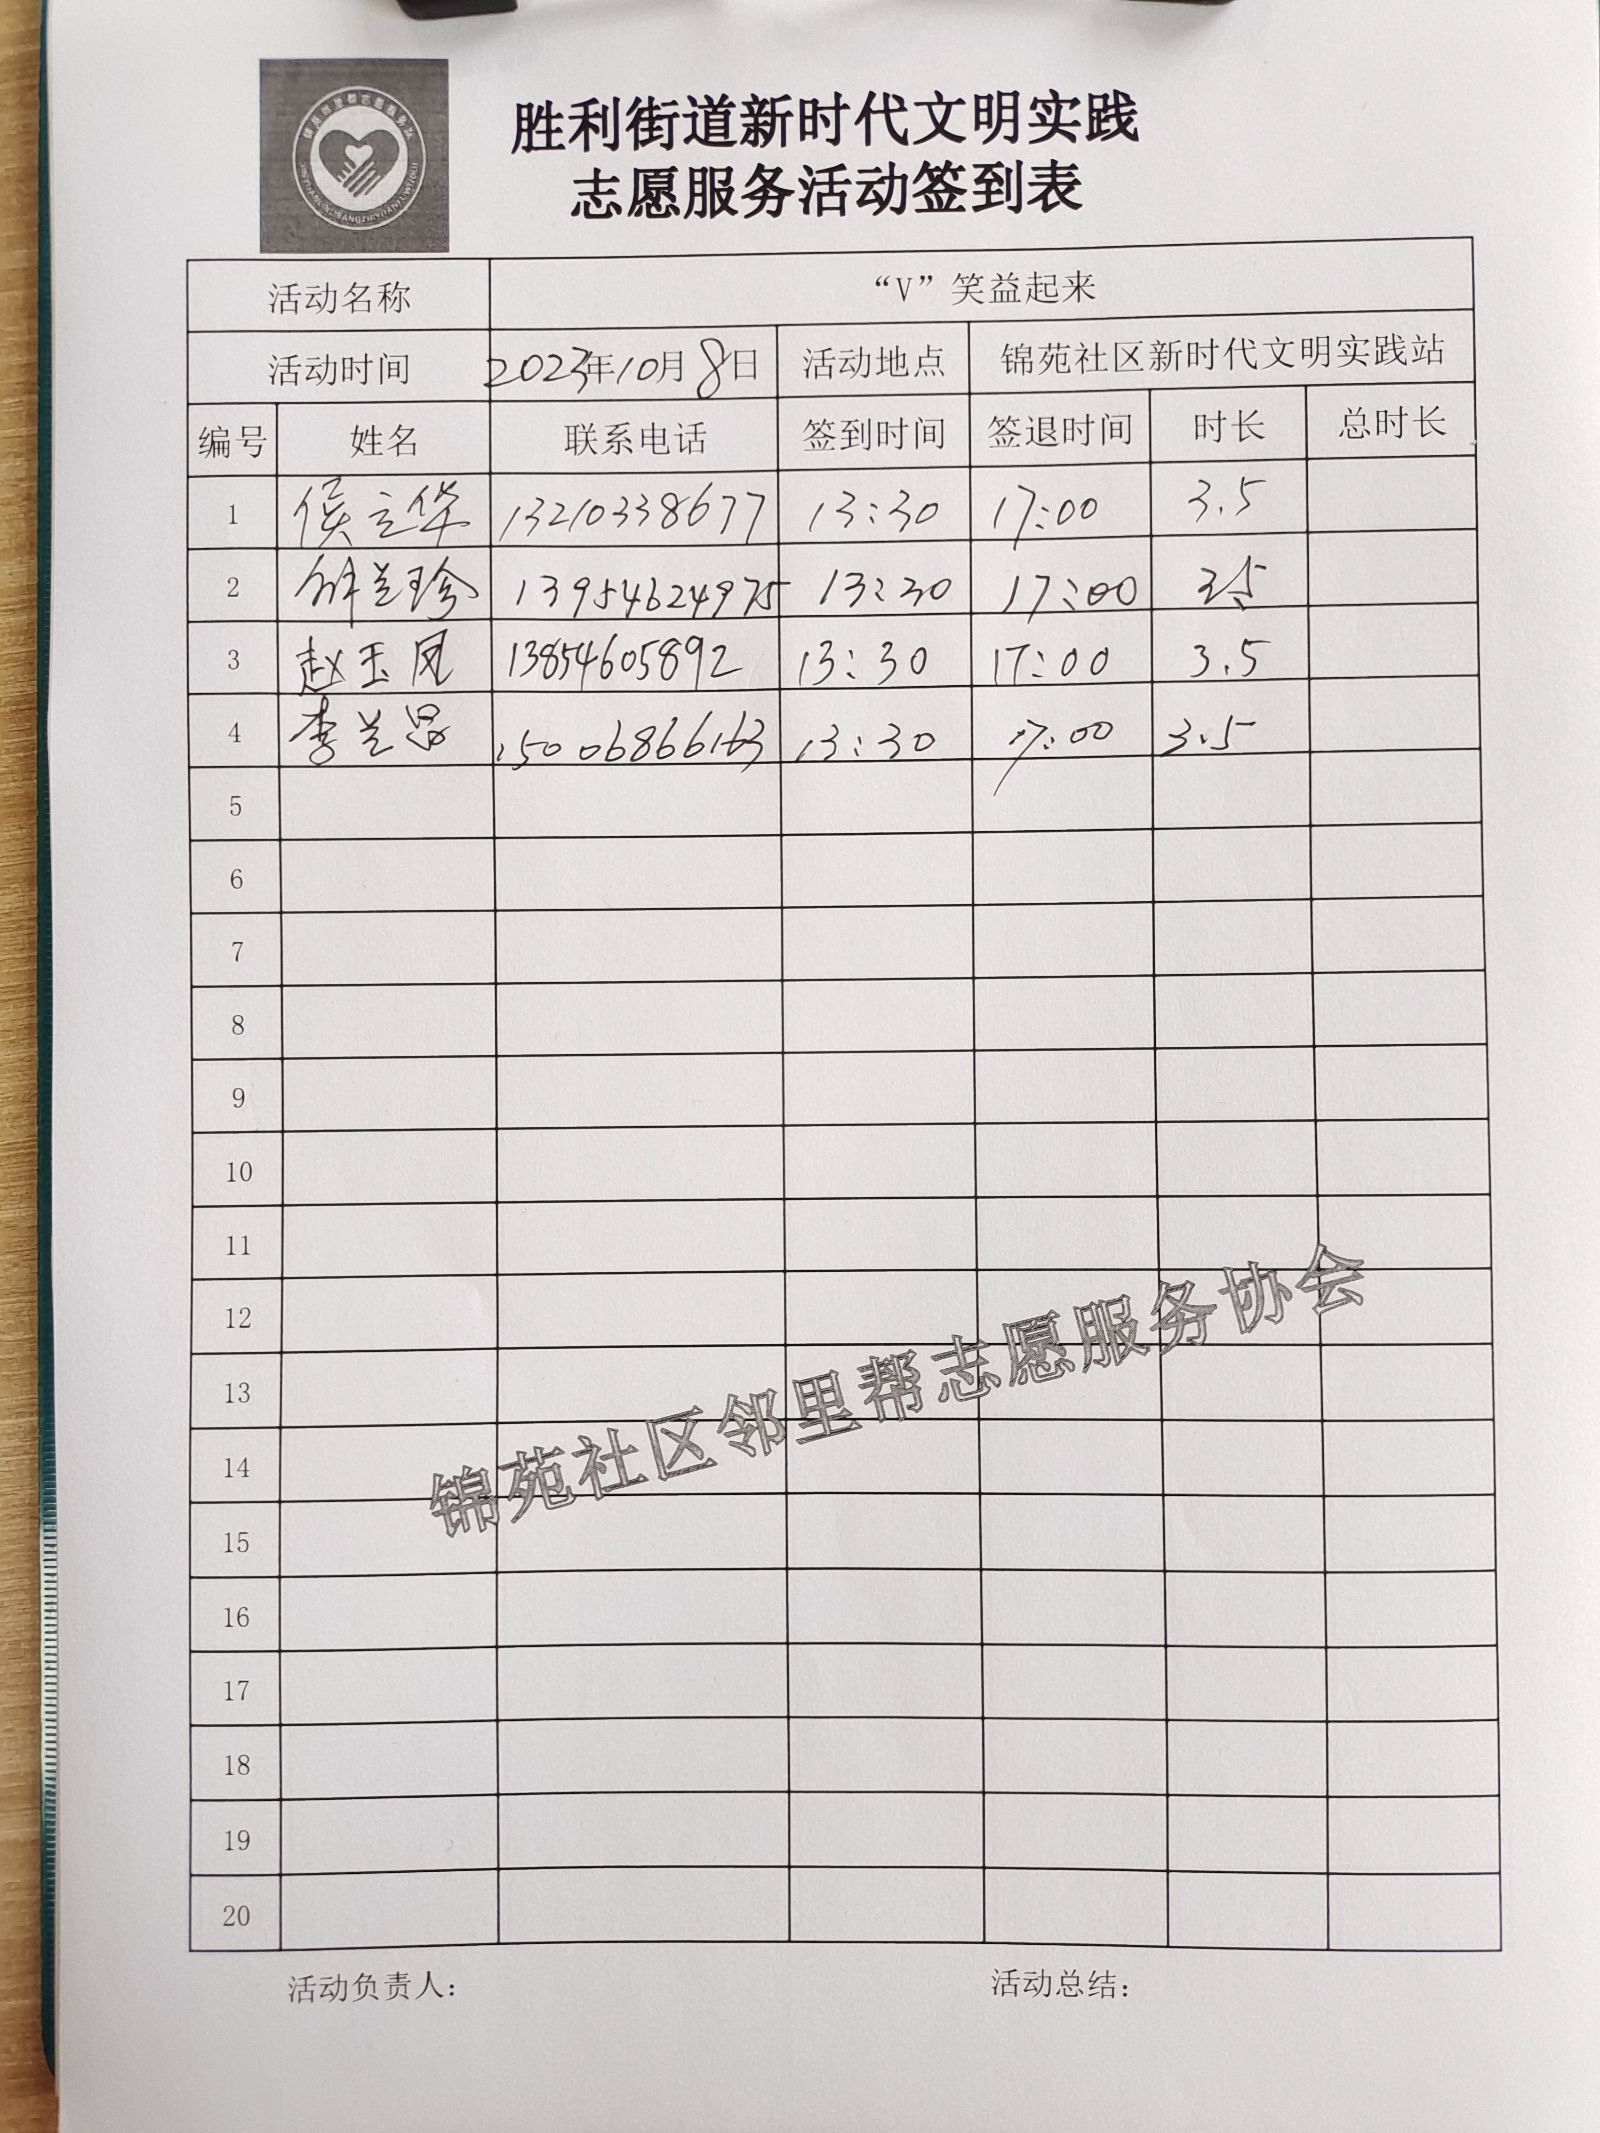 胜利街道新时代文明实践
志愿服务活动签到表
活动名称 “V”笑益起来
活动时间 2023年10月8日 活动地点 锦苑社区新时代文明实践站
编号 姓名 联系电话 签到时间 签退时间 时长 总时长
1 侯立华 13210338677 13:30 17:00 3.5
2 兰珍 13954624975 13:30 17:00 3.5
3 赵玉凤 13854605892 13:30 17:00 3.5
4 李兰 15006866163 13:30 17:00 3.5
5
6
7
8
9
10
11
12
13
14
15
16
17
18
19
20
锦苑社区邻里帮志愿服务协会
活动负责人： 活动总结：